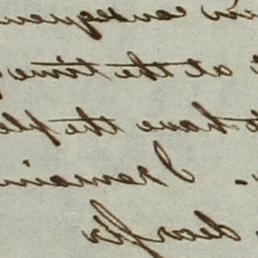 consequen
at the time
to have the ple
I remain
dear Sir